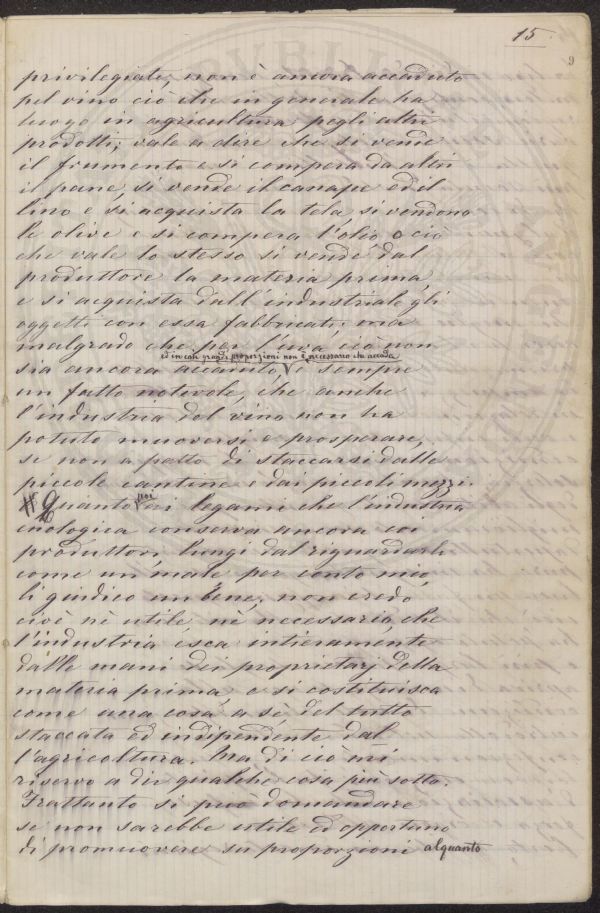 15
9
privilegiate, non è ancora accaduto
pel vino ciò che in generale ha
luogo in agricultura pegli altri
prodotti; vale a dire che si vende
il frumento e si compera da altri
il pane, si vende il canape ed il
lino e si acquista la tela si vendono
le olive e si compera l'olio, o ciò
che vale lo stesso si vende dal
produttore la materia prima,
e si acquista dall'industriale gli
oggetti con essa fabbricati; ma
malgrado che per l'uva ciò non
ed in cosi grandi proporzioni non è necessario che accada
sia ancora accaduto, è sempre
un fatto notevole, che anche
l'industria del vino non ha
potuto muoversi e prosperare,
se non a patto di staccarsi dalle
piccole cantine e dai piccoli mezzi.
# Quanto poi ai legami che l'industria
enologica conserva ancora coi
produttori, lungi dal riguardarli
come un male per conto mio,
li giudico un bene; non credo
cioè nè utile nè necessario, che
l'industria esca intieramente
dalle mani dei proprietarj della
materia prima, e si costituisca
come una cosa a sè, del tutto
staccata ed indipendente dal
l'agricoltura. Ma di ciò mi
riservo a dir qualche cosa più sotto.
Frattanto si può domandare
se non sarebbe utile ed opportuno
di promuovere su proporzioni alquanto